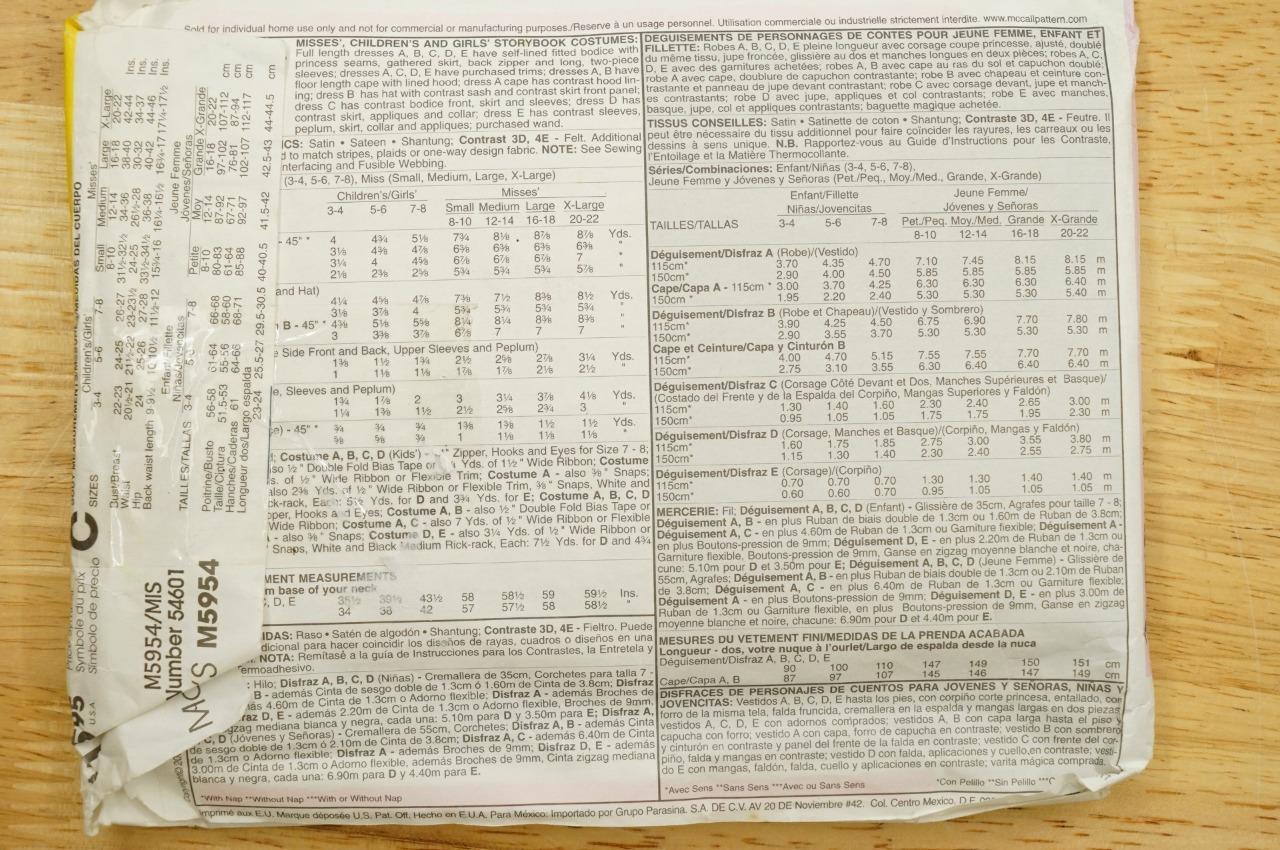 Sold for individual home use only and not for commercial or manufacturing purposes./Reserve à un usage personnel. Utilisation commerciale ou industrielle strictement interdite. www.mccallpattern.com
MISSES', CHILDREN'S AND GIRLS' STORYBOOK COSTUMES:
Full length dresses A, B, C, D, E have self-lined fitted bodice with
princess seams, gathered skirt, back zipper and long, two-piece
sleeves; dresses A, C, D, E have purchased trims; dresses A, B have
floor length cape with lined hood; dress A cape has contrast hood lin-
ing; dress B has hat with contrast sash and contrast skirt front panel;
dress C has contrast bodice front, skirt and sleeves; dress D has
contrast skirt, appliques and collar; dress E has contrast sleeves,
peplum, skirt, collar and appliques; purchased wand.
CS: Satin • Sateen • Shantung; Contrast 3D, 4E - Felt. Additional
d to match stripes, plaids or one-way design fabric. NOTE: See Sewing
nterfacing and Fusible Webbing.
(3-4, 5-6, 7-8), Miss (Small, Medium, Large, X-Large)
Children's/Girls' Misses'
3-4 5-6 7-8 Small Medium Large X-Large
8-10 12-14 16-18 20-22
- 45"* 4 4¾ 5⅛ 7¾ 8⅛ 8⅞ 8⅞ Yds.
3⅛ 4⅜ 4⅞ 6⅜ 6⅜ 6⅜ 6⅜ "
3¼ 4 4⅝ 6⅞ 6⅞ 6⅞ 7 "
2⅛ 2⅜ 2⅝ 5¾ 5¾ 5¾ 5⅞ "
and Hat)
4¼ 4⅝ 4⅞ 7⅜ 7½ 8⅜ 8½ Yds.
3⅛ 3⅞ 4 5¾ 5¾ 5¾ 5¾ "
B - 45"* 4⅜ 5⅛ 5⅝ 8¼ 8¼ 8⅜ 8⅜ "
3 3⅜ 3⅞ 6⅞ 7 7 7 "
Side Front and Back, Upper Sleeves and Peplum)
1⅜ 1½ 1¾ 2½ 2⅝ 2⅞ 3¼ Yds.
1 1⅛ 1⅛ 1⅞ 1⅞ 2⅛ 2½ "
e, Sleeves and Peplum)
1¾ 1⅞ 2 3 3¼ 3⅞ 4⅛ Yds.
1¼ 1⅜ 1½ 2½ 2⅝ 2¾ 3 "
e) - 45"* ¾ ¾ ¾ 1⅜ 1⅜ 1½ 1½ Yds.
⅝ ⅝ ¾ 1 1⅛ 1⅛ 1⅛ "
; Costume A, B, C, D (Kids') - Zipper, Hooks and Eyes for Size 7 - 8;
so ½" Double Fold Bias Tape or Yds. of 1½" Wide Ribbon; Costume
s. of ½" Wide Ribbon or Flexible Trim; Costume A - also ⅜" Snaps;
also 2⅜ Yds. of ½" Wide Ribbon or Flexible Trim, ⅜" Snaps, White and
ck-rack, Each: 5½ Yds. for D and 3¾ Yds. for E; Costume A, B, C, D
per, Hooks and Eyes; Costume A, B - also ½" Double Fold Bias Tape or
Wide Ribbon; Costume A, C - also 7 Yds. of ½" Wide Ribbon or Flexible
- also ⅜" Snaps; Costume D, E - also 3¼ Yds. of ½" Wide Ribbon or
Snaps, White and Black Medium Rick-rack, Each: 7½ Yds. for D and 4¾
MENT MEASUREMENTS
m base of your neck
C, D, E 35½ 39½ 43½ 58 58½ 59 59½ Ins.
34 38 42 57 57½ 58 58½ "
IDAS: Raso • Satén de algodón • Shantung; Contraste 3D, 4E - Fieltro. Puede
dicional para hacer coincidir los diseños de rayas, cuadros o diseños en una
NOTA: Remítasé a la guía de Instrucciones para los Contrastes, la Entretela y
ermoadhesivo.
: Hilo; Disfraz A, B, C, D (Niñas) - Cremallera de 35cm, Corchetes para talla 7 -
B - además Cinta de sesgo doble de 1.3cm ó 1.60m de Cinta de 3.8cm; Disfraz
ás 4.60m de Cinta de 1.3cm o Adorno flexible; Disfraz A - además Broches de
az D, E - además 2.20m de Cinta de 1.3cm o Adorno flexible, Broches de 9mm,
gzag mediana blanca y negra, cada una: 5.10m para D y 3.50m para E; Disfraz A,
C, D (Jóvenes y Señoras) - Cremallera de 55cm, Corchetes; Disfraz A, B - además Cinta
de sesgo doble de 1.3cm ó 2.10m de Cinta de 3.8cm; Disfraz A, C - además 6.40m de Cinta
de 1.3cm o Adorno flexible; Disfraz A - además Broches de 9mm; Disfraz D, E - además
3.00m de Cinta de 1.3cm o Adorno flexible, además Broches de 9mm, Cinta zigzag mediana
blanca y negra, cada una: 6.90m para D y 4.40m para E.
*With Nap **Without Nap ***With or Without Nap
DEGUISEMENTS DE PERSONNAGES DE CONTES POUR JEUNE FEMME, ENFANT ET
FILLETTE: Robes A, B, C, D, E pleine longueur avec corsage coupe princesse, ajusté, doublé
du même tissu, jupe froncée, glissière au dos et manches longues en deux pièces; robes A, C,
D, E avec des garnitures achetées; robes A, B avec cape au ras du sol et capuchon doublé;
robe A avec cape, doublure de capuchon contrastante; robe B avec chapeau et ceinture con-
trastante et panneau de jupe devant contrastant; robe C avec corsage devant, jupe et manch-
es contrastants; robe D avec jupe, appliques et col contrastants; robe E avec manches,
basque, jupe, col et appliques contrastants; baguette magique achetée.
TISSUS CONSEILLES: Satin • Satinette de coton • Shantung; Contraste 3D, 4E - Feutre. Il
peut être nécessaire du tissu additionnel pour faire coïncider les rayures, les carreaux ou les
dessins à sens unique. N.B. Rapportez-vous au Guide d'Instructions pour les Contraste,
l'Entoilage et la Matière Thermocollante.
Séries/Combinaciones: Enfant/Niñas (3-4, 5-6, 7-8),
Jeune Femme y Jóvenes y Señoras (Pet./Peq., Moy./Med., Grande, X-Grande)
Enfant/Fillette Jeune Femme/
Niñas/Jovencitas Jóvenes y Señoras
TAILLES/TALLAS 3-4 5-6 7-8 Pet./Peq. Moy./Med. Grande X-Grande
8-10 12-14 16-18 20-22
Déguisement/Disfraz A (Robe)/(Vestido)
115cm* 3.70 4.35 4.70 7.10 7.45 8.15 8.15 m
150cm* 2.90 4.00 4.50 5.85 5.85 5.85 5.85 m
Cape/Capa A - 115cm * 3.00 3.70 4.25 6.30 6.30 6.30 6.40 m
150cm * 1.95 2.20 2.40 5.30 5.30 5.30 5.40 m
Déguisement/Disfraz B (Robe et Chapeau)/(Vestido y Sombrero)
115cm* 3.90 4.25 4.50 6.75 6.90 7.70 7.80 m
150cm* 2.90 3.55 3.70 5.30 5.30 5.30 5.30 m
Cape et Ceinture/Capa y Cinturón B
115cm* 4.00 4.70 5.15 7.55 7.55 7.70 7.70 m
150cm* 2.75 3.10 3.55 6.30 6.40 6.40 6.40 m
Déguisement/Disfraz C (Corsage Côté Devant et Dos, Manches Supérieures et Basque)/
(Costado del Frente y de la Espalda del Corpiño, Mangas Superiores y Faldón)
115cm* 1.30 1.40 1.60 2.30 2.40 2.65 3.00 m
150cm* 0.95 1.05 1.05 1.75 1.75 1.95 2.30 m
Déguisement/Disfraz D (Corsage, Manches et Basque)/(Corpiño, Mangas y Faldón)
115cm* 1.60 1.75 1.85 2.75 3.00 3.55 3.80 m
150cm* 1.15 1.30 1.40 2.30 2.40 2.55 2.75 m
Déguisement/Disfraz E (Corsage)/(Corpiño)
115cm* 0.70 0.70 0.70 1.30 1.30 1.40 1.40 m
150cm* 0.60 0.60 0.70 0.95 1.05 1.05 1.05 m
MERCERIE: Fil; Déguisement A, B, C, D (Enfant) - Glissière de 35cm, Agrafes pour taille 7 - 8;
Déguisement A, B - en plus Ruban de biais double de 1.3cm ou 1.60m de Ruban de 3.8cm;
Déguisement A, C - en plus 4.60m de Ruban de 1.3cm ou Garniture flexible; Déguisement A -
en plus Boutons-pression de 9mm; Déguisement D, E - en plus 2.20m de Ruban de 1.3cm ou
Garniture flexible, Boutons-pression de 9mm, Ganse en zigzag moyenne blanche et noire, cha-
cune: 5.10m pour D et 3.50m pour E; Déguisement A, B, C, D (Jeune Femme) - Glissière de
55cm, Agrafes; Déguisement A, B - en plus Ruban de biais double de 1.3cm ou 2.10m de Ruban
de 3.8cm; Déguisement A, C - en plus 6.40m de Ruban de 1.3cm ou Garniture flexible;
Déguisement A - en plus Boutons-pression de 9mm; Déguisement D, E - en plus 3.00m de
Ruban de 1.3cm ou Garniture flexible, en plus Boutons-pression de 9mm, Ganse en zigzag
moyenne blanche et noire, chacune: 6.90m pour D et 4.40m pour E.
MESURES DU VETEMENT FINI/MEDIDAS DE LA PRENDA ACABADA
Longueur - dos, votre nuque à l'ourlet/Largo de espalda desde la nuca
Déguisement/Disfraz A, B, C, D, E
90 100 110 147 149 150 151 cm
Cape/Capa A, B 87 97 107 145 146 147 149 cm
DISFRACES DE PERSONAJES DE CUENTOS PARA JOVENES Y SEÑORAS, NIÑAS Y
JOVENCITAS: Vestidos A, B, C, D, E hasta los pies, con corpiño corte princesa, entallado, con
forro de la misma tela, falda fruncida, cremallera en la espalda y mangas largas en dos piezas;
vestidos A, C, D, E con adornos comprados; vestidos A, B con capa larga hasta el piso y
capucha con forro; vestido A con capa, forro de capucha en contraste; vestido B con sombrero
y cinturón en contraste y panel del frente de la falda en contraste; vestido C con frente del cor-
piño, falda y mangas en contraste; vestido D con falda, aplicaciones y cuello,en contraste; vesti-
do E con mangas, faldón, falda, cuello y aplicaciones en contraste; varita mágica comprada.
*Avec Sens **Sans Sens ***Avec ou Sans Sens *Con Pelillo **Sin Pelillo ***C
Imprimé aux E.U. Marque déposée U.S. Pat. Off. Hecho en E.U.A. Para México. Importado por Grupo Parasina. S.A. DE C.V. AV 20 DE Noviembre #42. Col. Centro Mexico. D.F.
Children's/Girls' Misses'
SIZES 3-4 5-6 7-8 Small Medium Large X-Large
8-10 12-14 16-18 20-22
Bust/Breast 22-23 24-25 26-27 31½-32½ 34-36 38-40 42-44 Ins.
Waist 20½-21 21½-22 23-23½ 24-25 26½-28 30-32 34-37 Ins.
Hip 24 25-26 27-28 33½-34½ 36-38 40-42 44-46 Ins.
Back waist length 9-9½ 10-10½ 11½-12 15¾-16 16¼-16½ 16¾-17 17¼-17½ Ins.
Enfant/Fillette Jeune Femme
Niñas/Jovencitas Jóvenes/Señoras
TAILLES/TALLAS 3-4 5-6 7-8 Petite Moy Grande X-Grande
8-10 12-14 16-18 20-22
Poitrine/Busto 56-58 61-64 66-68 80-83 87-92 97-102 107-112 cm
Taille/Cintura 51.5-53 55-56 58-60 61-64 67-71 76-81 87-94 cm
Hanches/Caderas 61 64-66 68-71 85-88 92-97 102-107 112-117
Longueur dos/Largo espalda 23-24 25.5-27 29.5-30.5 40-40.5 41.5-42 42.5-43 44-44.5 cm
Symbole du prix
Símbolo de precio
C
U.S.A.
M5954/MIS
Number 54601
M5954